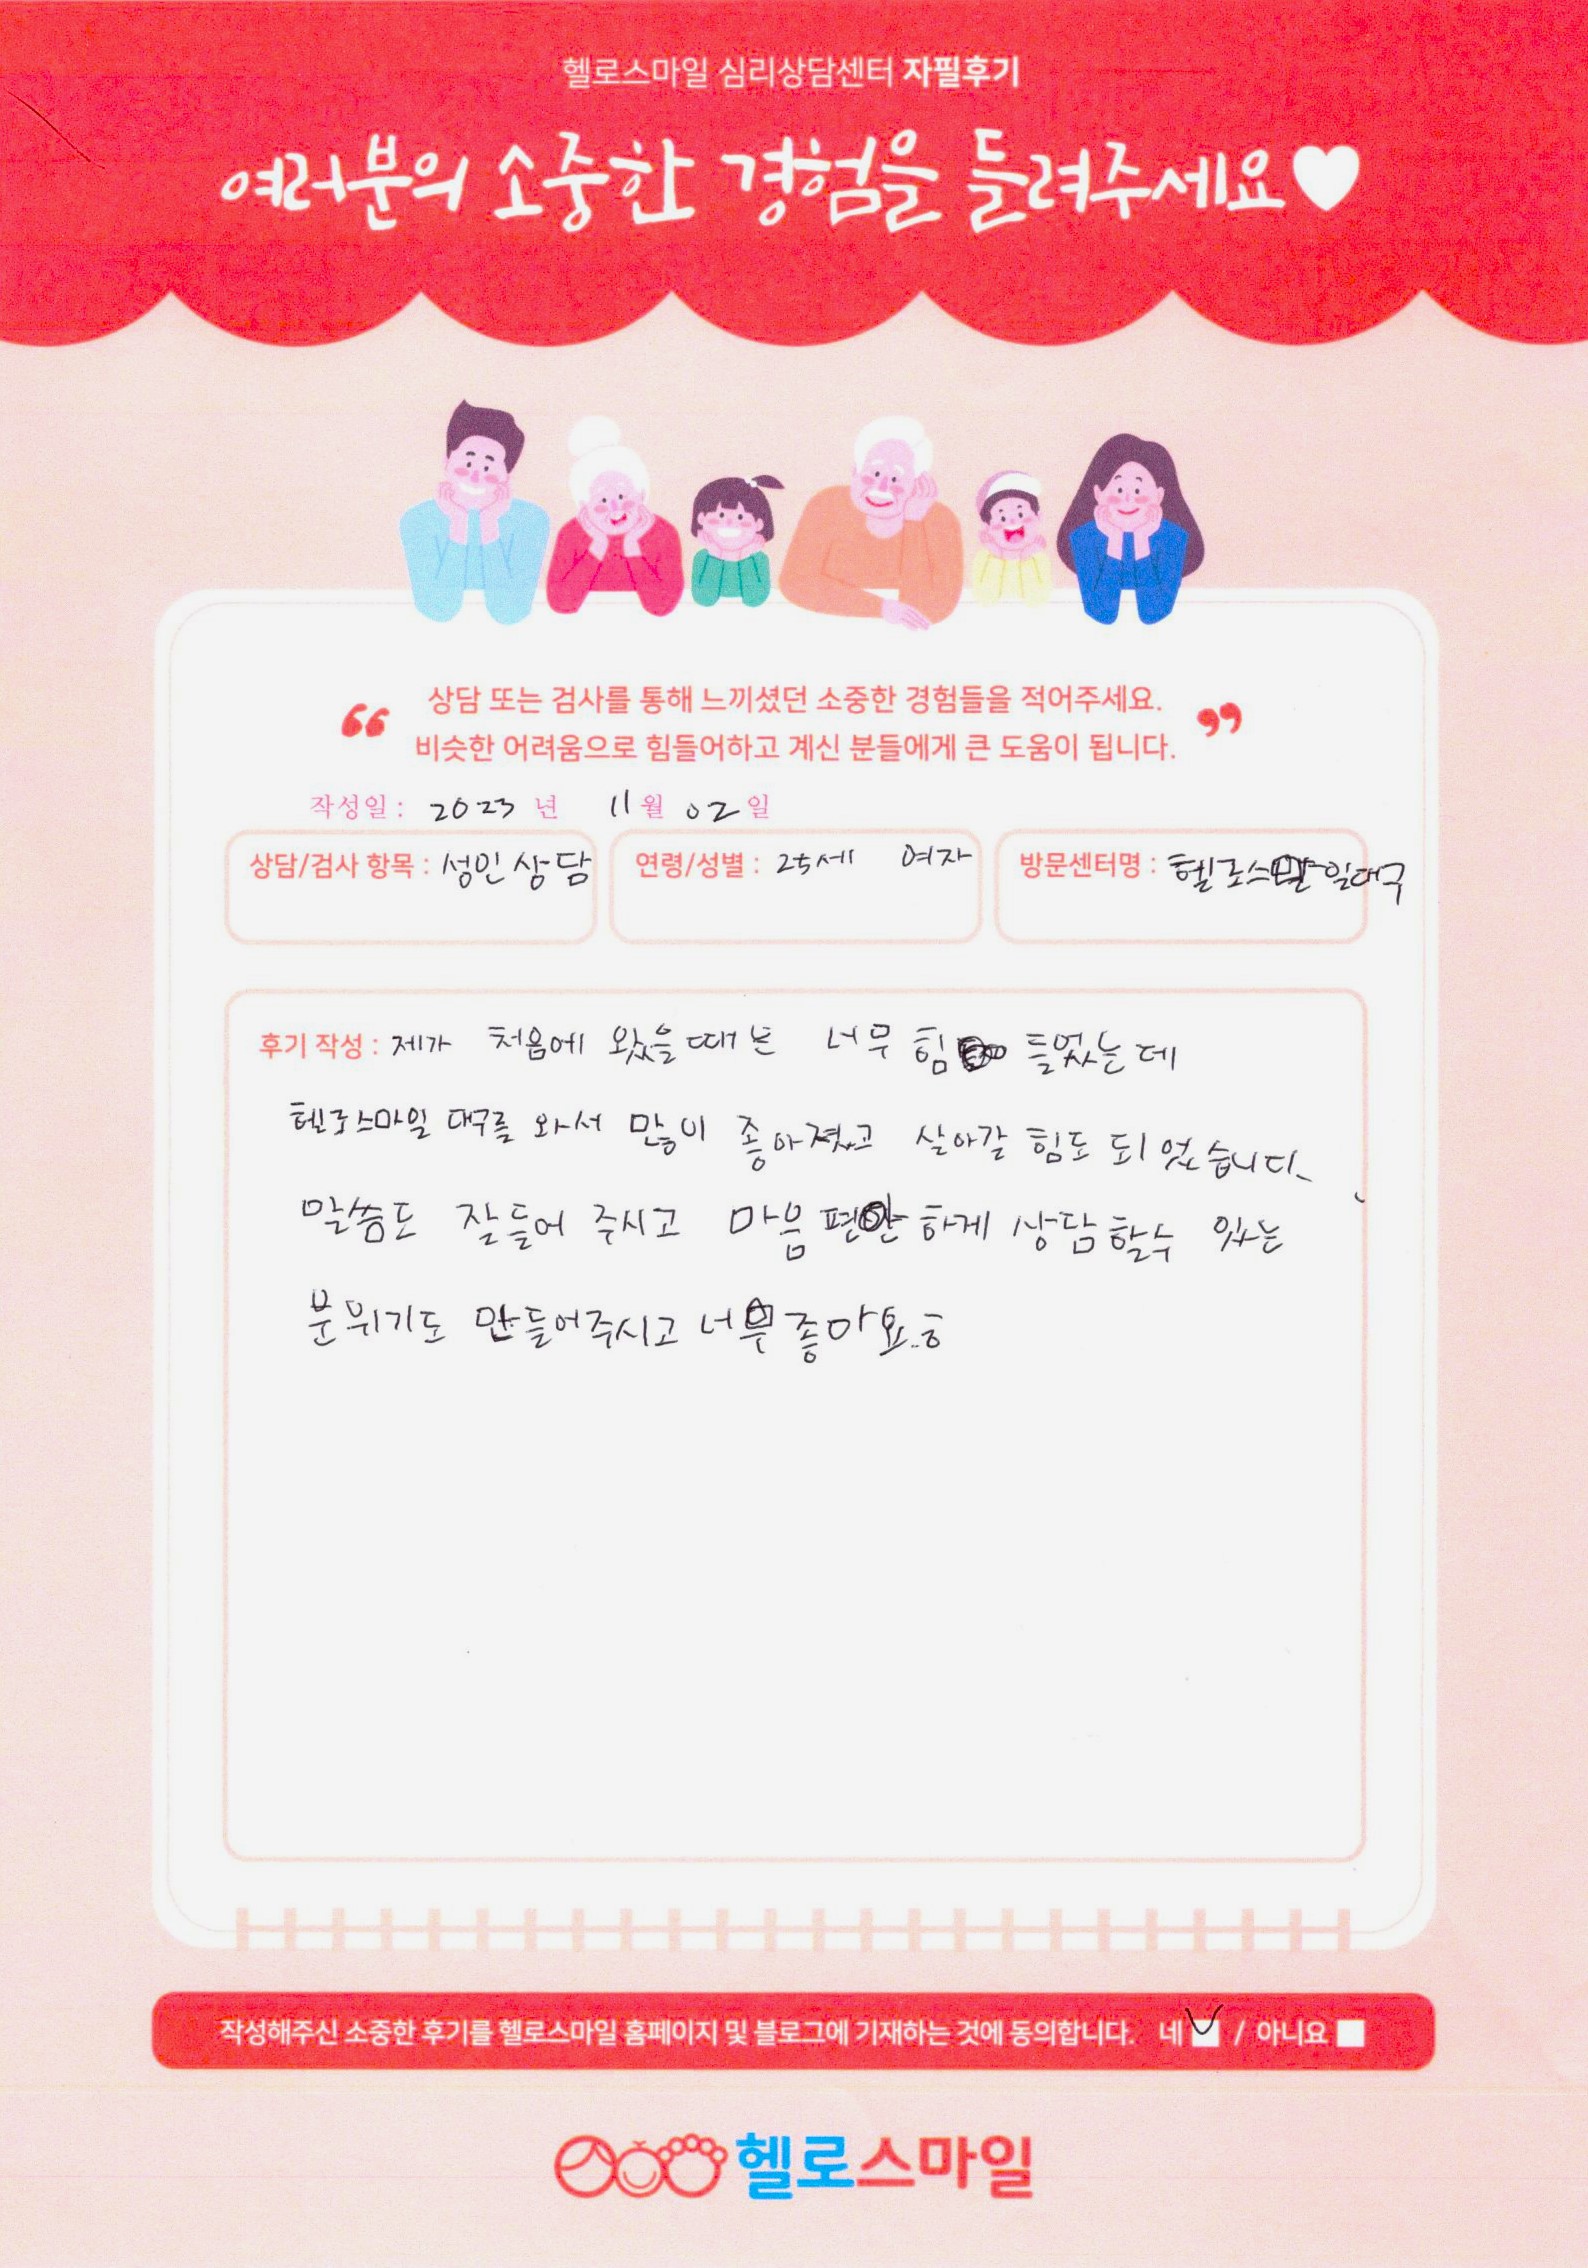 헬로스마일 심리상담센터 자필후기
여러분의 소중한 경험을 들려주세요♥
“ 상담 또는 검사를 통해 느끼셨던 소중한 경험들을 적어주세요. ”
비슷한 어려움으로 힘들어하고 계신 분들에게 큰 도움이 됩니다.
작성일 : 2023 년 11 월 02 일
상담/검사 항목 : 성인상담 연령/성별 : 25세 여자 방문센터명 : 헬로스마일대구
후기 작성 : 제가 처음에 왔을때는 너무 힘들었는데
헬로스마일 대구를 와서 많이 좋아졌고 살아갈 힘도 되었습니다.
말씀도 잘들어 주시고 마음 편안하게 상담할수 있는
분위기도 만들어주시고 너무 좋아요..ㅎ
작성해주신 소중한 후기를 헬로스마일 홈페이지 및 블로그에 기재하는 것에 동의합니다. 네 / 아니요
헬로스마일